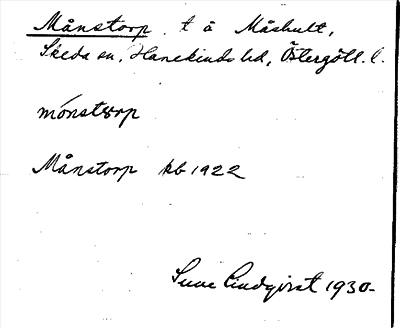 Månstorp t å Måshult,
Skeda sn, Hanekinds hd, Östergötl. l.
mónstorp
Månstorp kb 1922
Sune Lindqvist 1930-